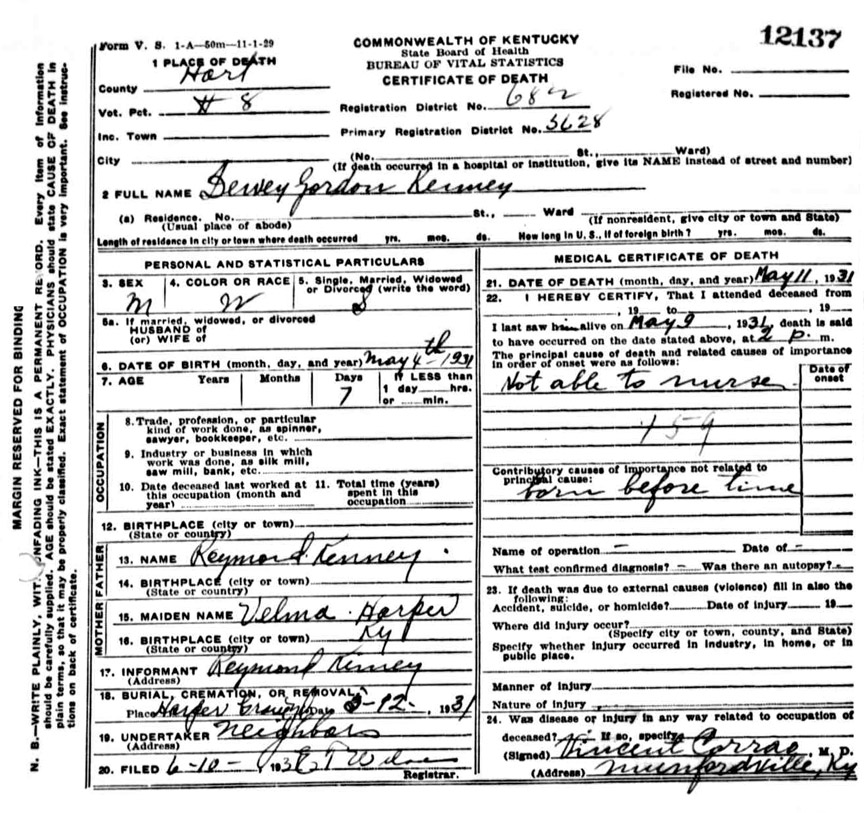 Form V. S. 1-A—50m—11-1-29
COMMONWEALTH OF KENTUCKY
State Board of Health
BUREAU OF VITAL STATISTICS
CERTIFICATE OF DEATH
12137
File No.
Registered No.
1 PLACE OF DEATH
County Hart
Vot. Pct. # 8
Inc. Town
City
Registration District No. 682
Primary Registration District No. 5628
(No. St., Ward)
(If death occurred in a hospital or institution, give its NAME instead of street and number)
2 FULL NAME Dewey Gordon Kenney
(a) Residence. No. St., Ward
(Usual place of abode) (If nonresident, give city or town and State)
Length of residence in city or town where death occurred yrs. mos. ds. How long in U. S., if of foreign birth? yrs. mos. ds.
PERSONAL AND STATISTICAL PARTICULARS
3. SEX 4. COLOR OR RACE 5. Single, Married, Widowed
or Divorced (write the word)
M W S
5a. If married, widowed, or divorced
HUSBAND of
(or) WIFE of
6. DATE OF BIRTH (month, day, and year) May 4th 1931
7. AGE Years Months Days If LESS than
7 1 day hrs.
or min.
OCCUPATION
8. Trade, profession, or particular
kind of work done, as spinner,
sawyer, bookkeeper, etc.
9. Industry or business in which
work was done, as silk mill,
saw mill, bank, etc.
10. Date deceased last worked at 11. Total time (years)
this occupation (month and spent in this
year) occupation
12. BIRTHPLACE (city or town)
(State or country)
FATHER
13. NAME Reymond Kenney
14. BIRTHPLACE (city or town)
(State or country)
MOTHER
15. MAIDEN NAME Velma Harper
16. BIRTHPLACE (city or town) Ky
(State or country)
17. INFORMANT Reymond Kenney
(Address)
18. BURIAL, CREMATION, OR REMOVAL
Place Harper Date 5-12-, 1931
19. UNDERTAKER Neighbors
(Address)
20. FILED 6-10-, 193
Registrar.
MEDICAL CERTIFICATE OF DEATH
21. DATE OF DEATH (month, day, and year) May 11, 1931
22. I HEREBY CERTIFY, That I attended deceased from
, 19 to , 19
I last saw him alive on May 9, 1931, death is said
to have occurred on the date stated above, at 2 p. m.
The principal cause of death and related causes of importance
in order of onset were as follows:
Date of
onset
Not able to nurse
159
Contributory causes of importance not related to
principal cause:
born before time
Name of operation — Date of —
What test confirmed diagnosis? — Was there an autopsy? —
23. If death was due to external causes (violence) fill in also the
following:
Accident, suicide, or homicide? Date of injury 19
Where did injury occur?
(Specify city or town, county, and State)
Specify whether injury occurred in industry, in home, or in
public place.
Manner of injury
Nature of injury
24. Was disease or injury in any way related to occupation of
deceased? If so, specify
(Signed) Vincent Corrao, M. D.
(Address) Munfordville, Ky
MARGIN RESERVED FOR BINDING
N. B.—WRITE PLAINLY, WITH UNFADING INK—THIS IS A PERMANENT RECORD. Every item of information
should be carefully supplied. AGE should be stated EXACTLY. PHYSICIANS should state CAUSE OF DEATH in
plain terms, so that it may be properly classified. Exact statement of OCCUPATION is very important. See instruc-
tions on back of certificate.